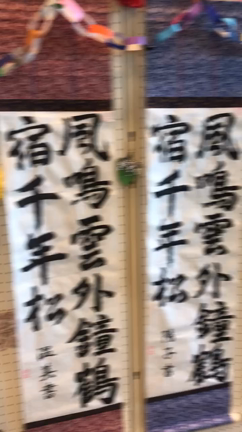 風鳴雲外鐘鶴
宿千年松
風鳴雲外鐘鶴
宿千年松